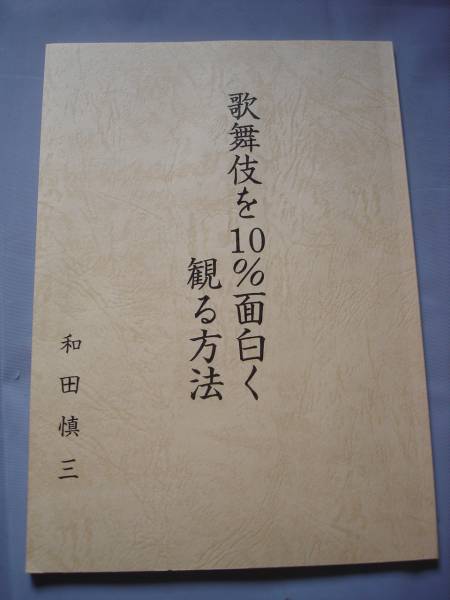 歌舞伎を10%面白く
観る方法
和田慎三